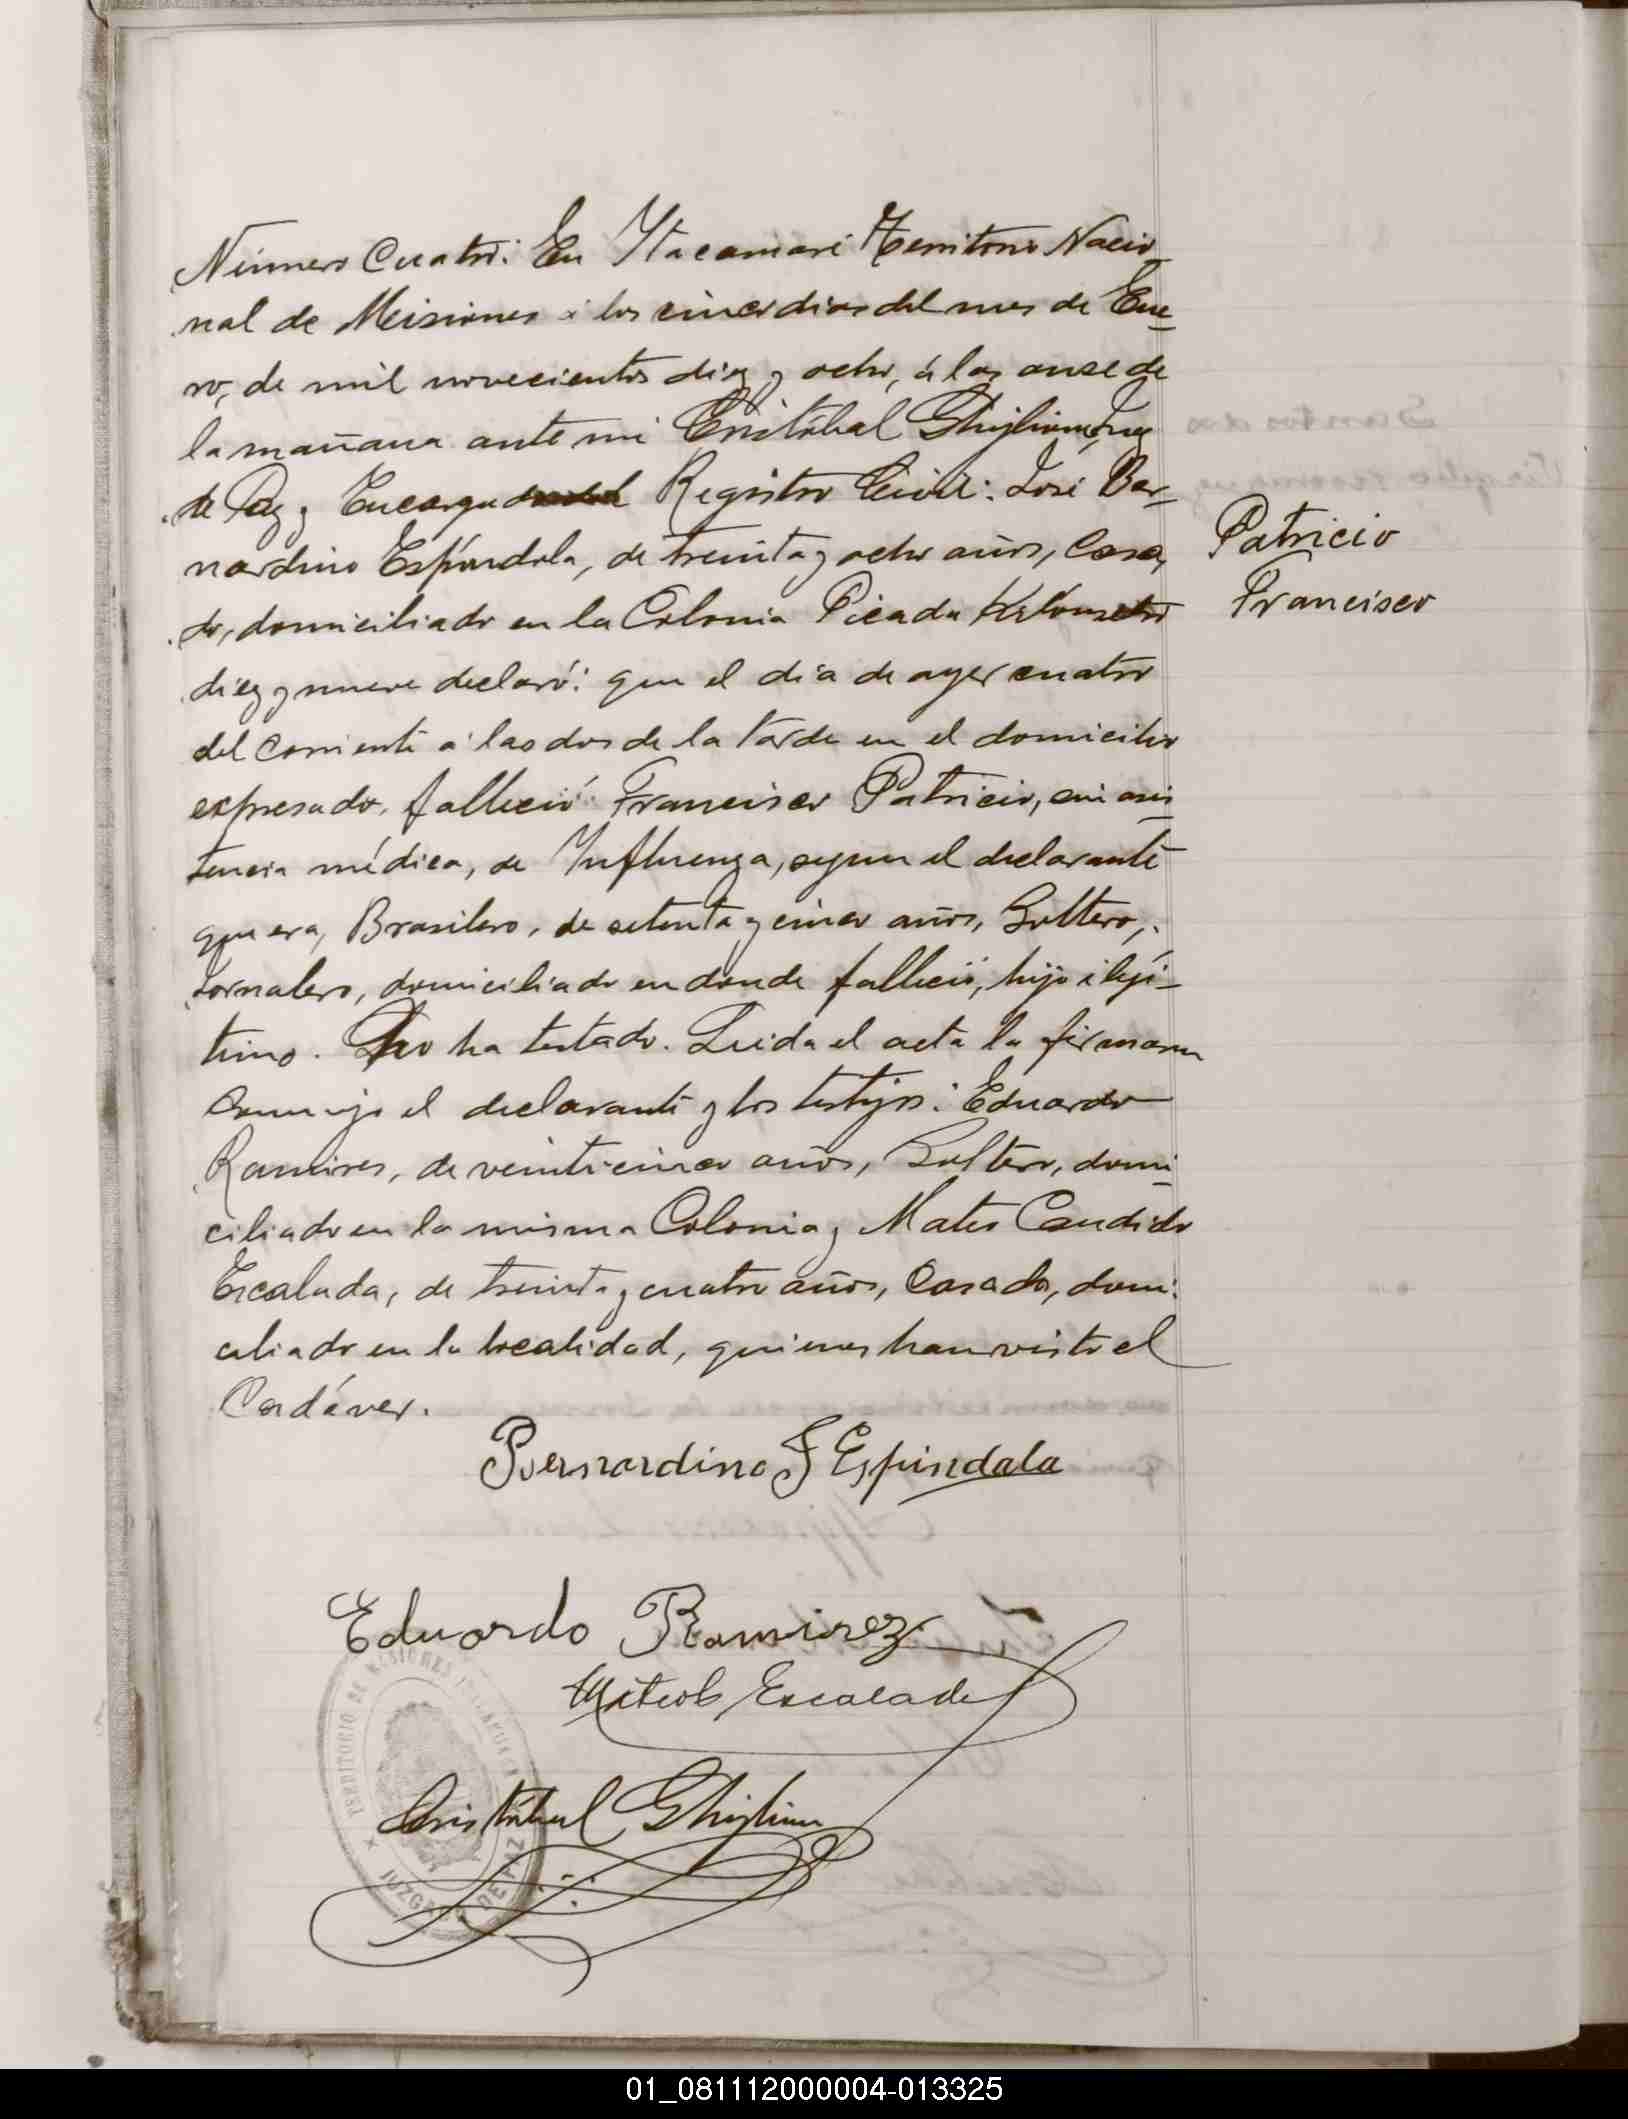 Número Cuatro: En Ytacaruaré Territorio Nacio-
nal de Misiones á los cinco dias del mes de Ene-
ro, de mil novecientos diez y ocho, á las onse de
la mañana ante mi Cristóbal Ghiglione, Juez
de Paz y Encargado del Registro Civil: José Ber-
nardino Espíndola, de treinta y ocho años, Casa-
do, domiciliado en la Colonia Picada Kilómetro
diez y nueve declaró: que el dia de ayer cuatro
del corriente á las dos de la tarde en el domicilio
expresado, falleció Francisco Patricio, sin asis-
tencia médica, de Influenza, segun el declarante
que era, Brasilero, de setenta y cinco años, Soltero,
Jornalero, domiciliado en donde falleció, hijo ilegí-
timo. No ha testado. Leida el acta la firmaron
conmigo el declarante y los testigos: Eduardo
Ramires, de veinticinco años, Soltero, domi-
ciliado en la misma Colonia y Mateo Candido
Escalada, de treinta y cuatro años, Casado, domi-
ciliado en la localidad, quienes han visto el
Cadáver.
Patricio
Francisco
Bernardino J Espindala
Eduardo Ramirez
Escalade
Cristóbal Ghiglione
TERRITORIO DE MISIONES
JUZGADO DE PAZ
01_081112000004-013325